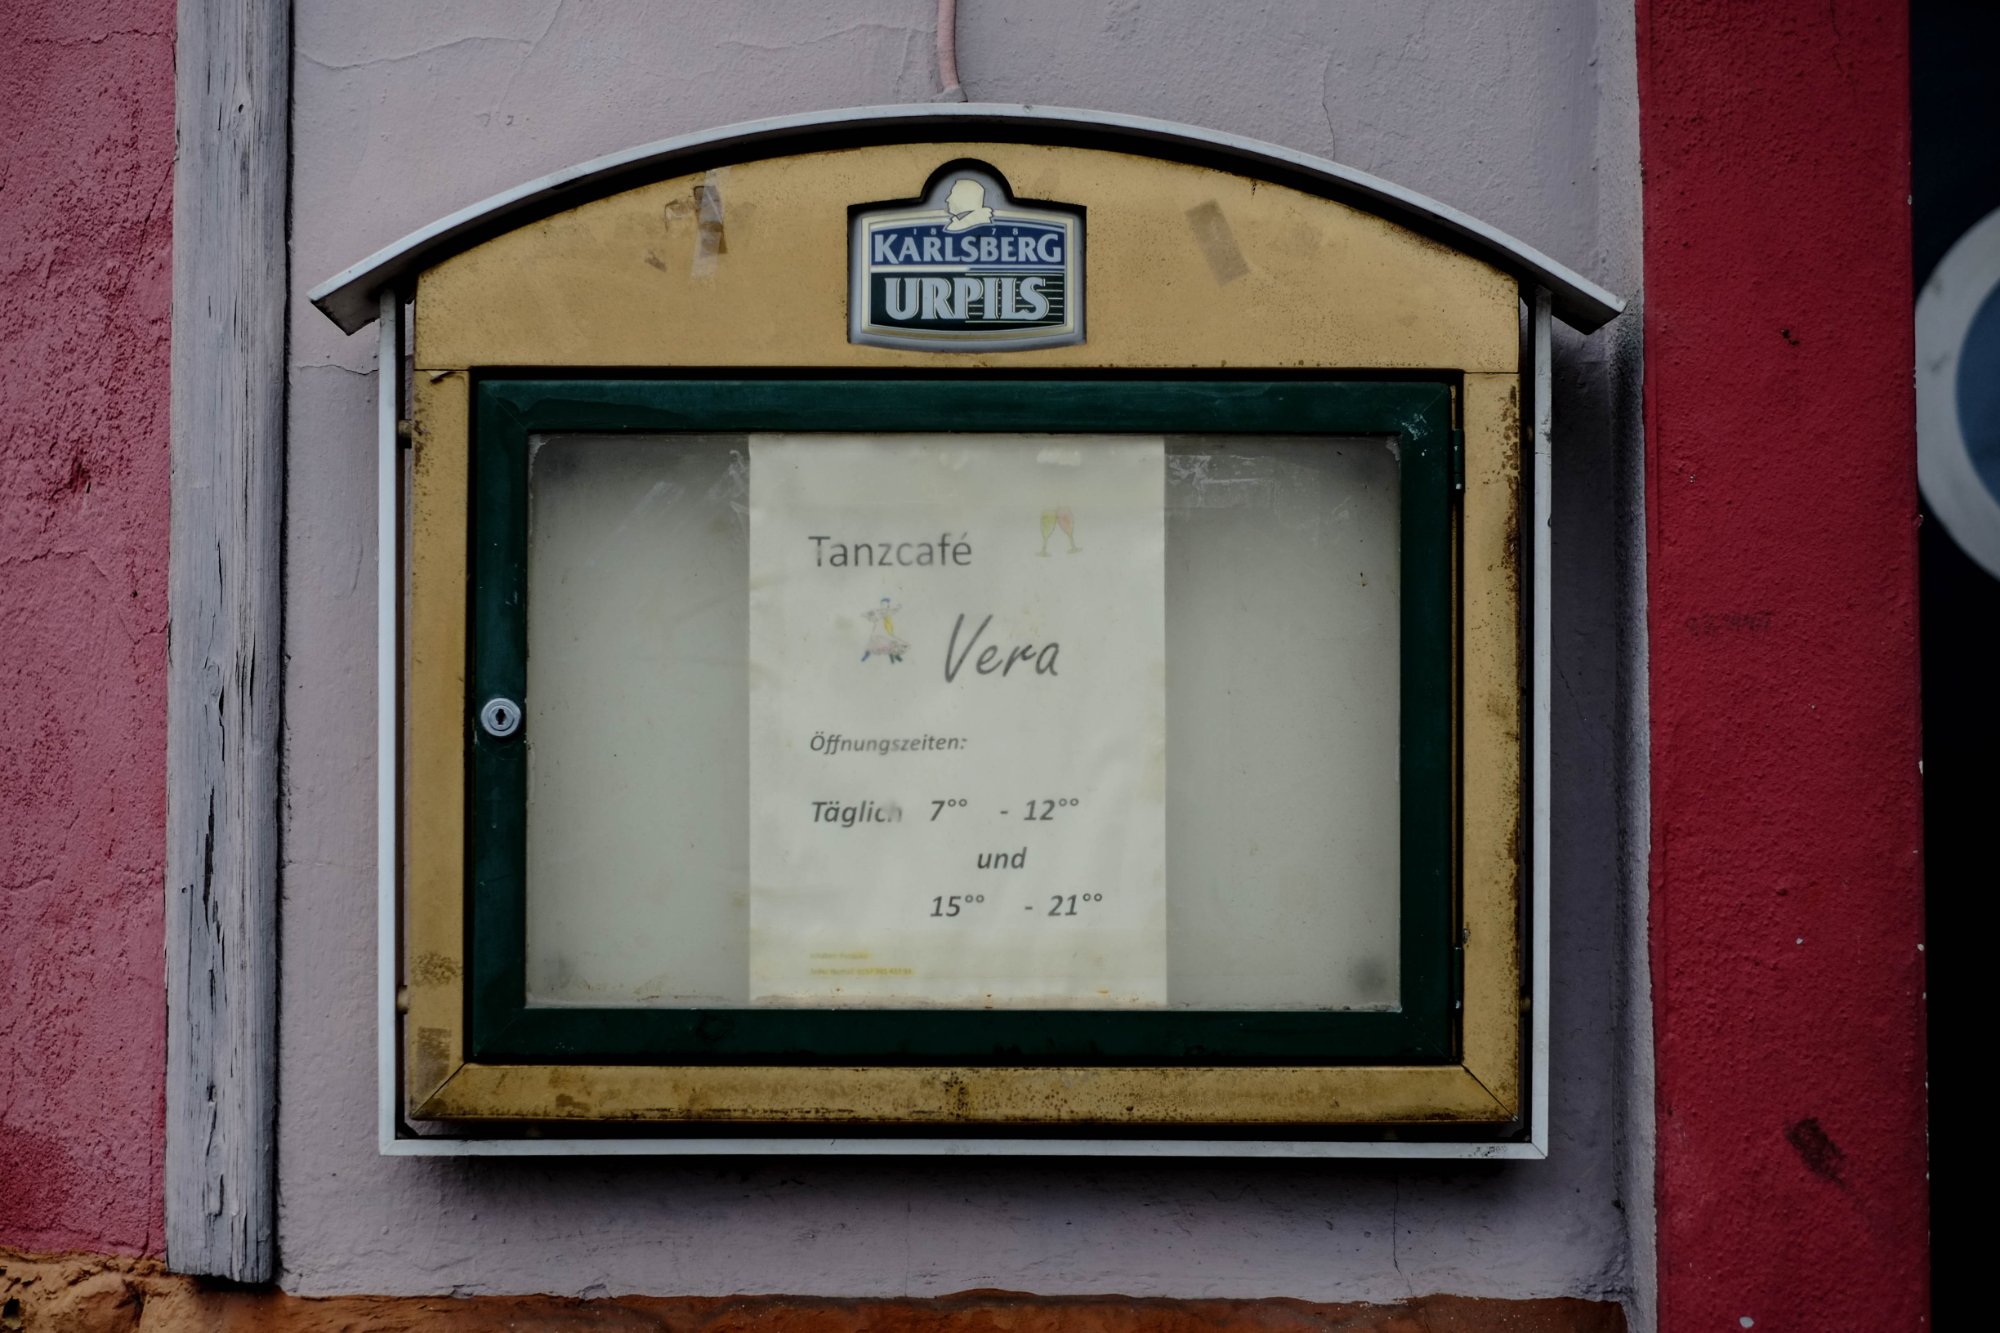 1878
KARLSBERG
URPILS
Tanzcafé
Vera
Öffnungszeiten:
Täglich 7°° - 12°°
und
15°° - 21°°